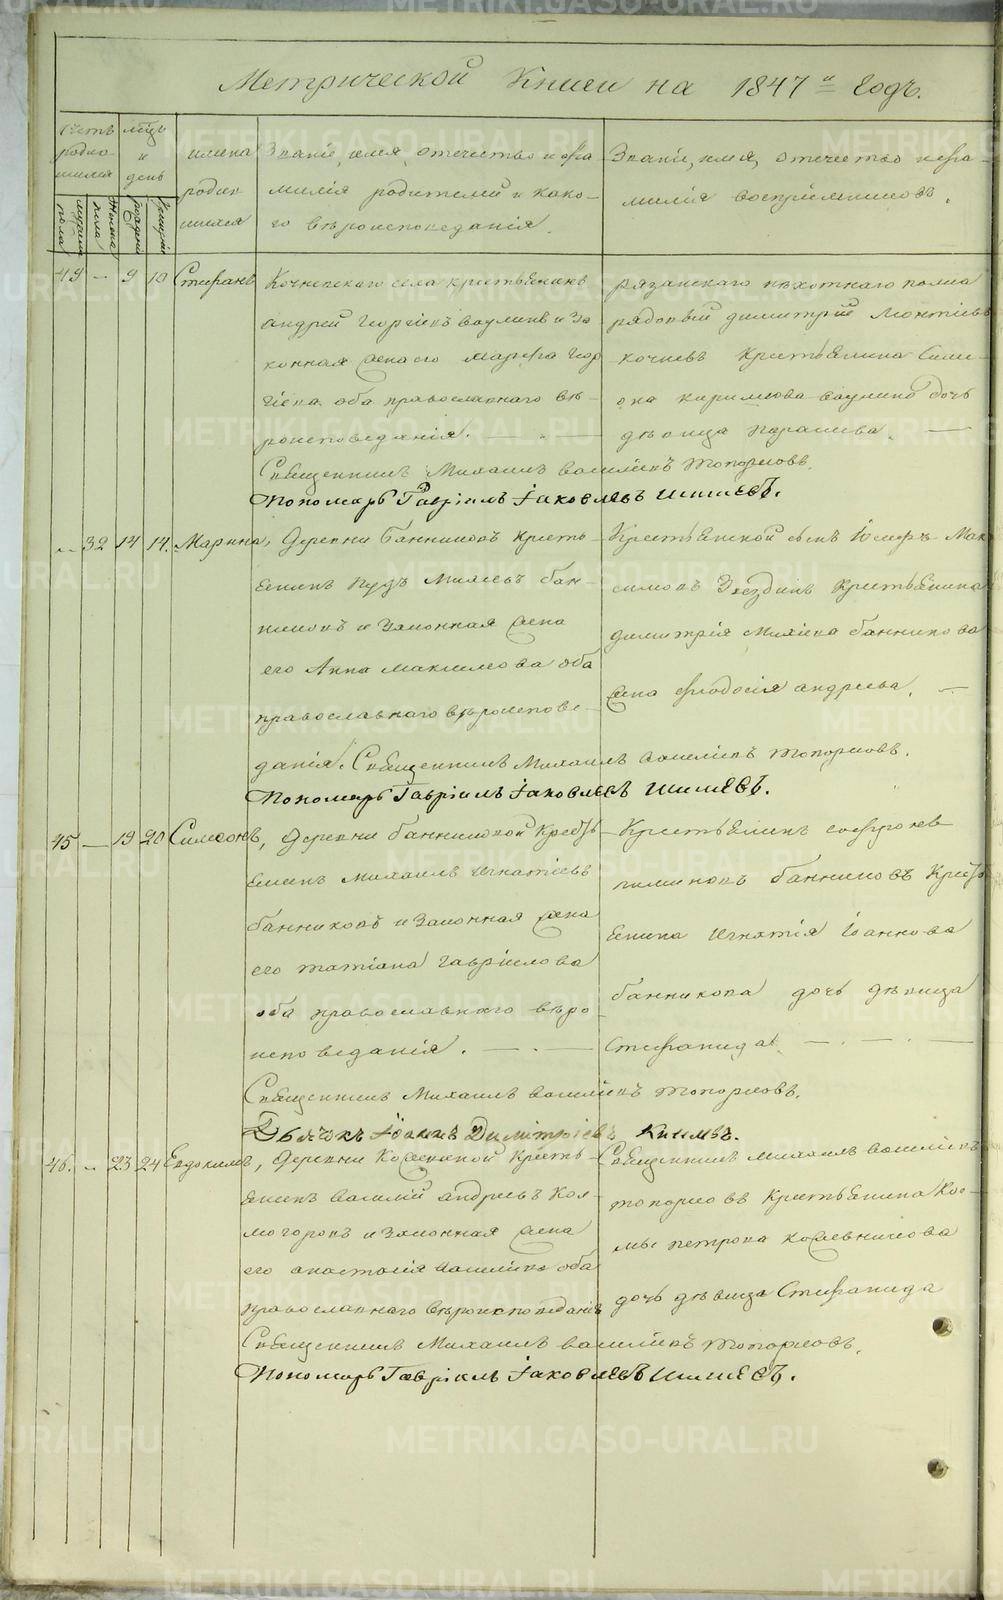 Метрической Книги на 1847й Годъ.
Счетъ родившихся
мужеска пола
женска пола
Мѣсяцъ и день
рожденія
крещенія
имена родившихся
Званіе, имя, отечество и фамилія родителей и какого вѣроисповеданія.
Званіе, имя, отечество и фамилія воспріемниковъ.
9 10 Стефанъ
Кочневскаго села крестьянинъ
Андрей Георгіевъ Ваулинъ и законная жена его Марфа Георгіева оба православнаго вѣроисповеданія.
рязанскаго пѣхотнаго полка
рядовый димитрій Леонтіевъ
кочневъ Крестьянина
ваулина дочь
дѣвица Параскева.
Священникъ Михаилъ василіевъ топорковъ.
Пономарь Гавріилъ Іаковлевъ Шишевъ.
32 14 14. Марина,
Деревни Банниковой Крестьянинъ
Банниковъ и Законная жена
его Анна Максимова оба
православнаго вѣроисповеданія.
Максимовъ Звездинъ Крестьянина
димитрія банникова
жена феодосія андреева.
Священникъ Михаилъ василіевъ топорковъ.
Пономарь Гавріилъ Іаковлевъ Шишевъ.
45 — 19 20 Симеонъ,
Деревни банниковой Крестьянинъ Михаилъ Игнатіевъ
банниковъ и Законная жена
его татіана гавріилова
оба православнаго вѣроисповеданія.
Крестьянинъ
банниковъ Крестьянина Игнатія Іоаннова
банникова дочь дѣвица
Стефанида.
Священникъ Михаилъ василіевъ топорковъ.
Дьячекъ Іоаннъ Димітріевъ
46. — 23 24 Евдокимъ,
Деревни Кожевниковой Крестьянинъ Василій андреевъ Колмогоровъ и Законная жена
его анастасія василіева оба
православнаго вѣроисповеданія
Священникъ михаилъ василіевъ
топорковъ Крестьянина Космы петрова кожевникова
дочь дѣвица Стефанида
Священникъ Михаилъ василіевъ топорковъ.
Пономарь Гавріилъ Іаковлевъ Шишевъ.
METRIKI.GASO-URAL.RU